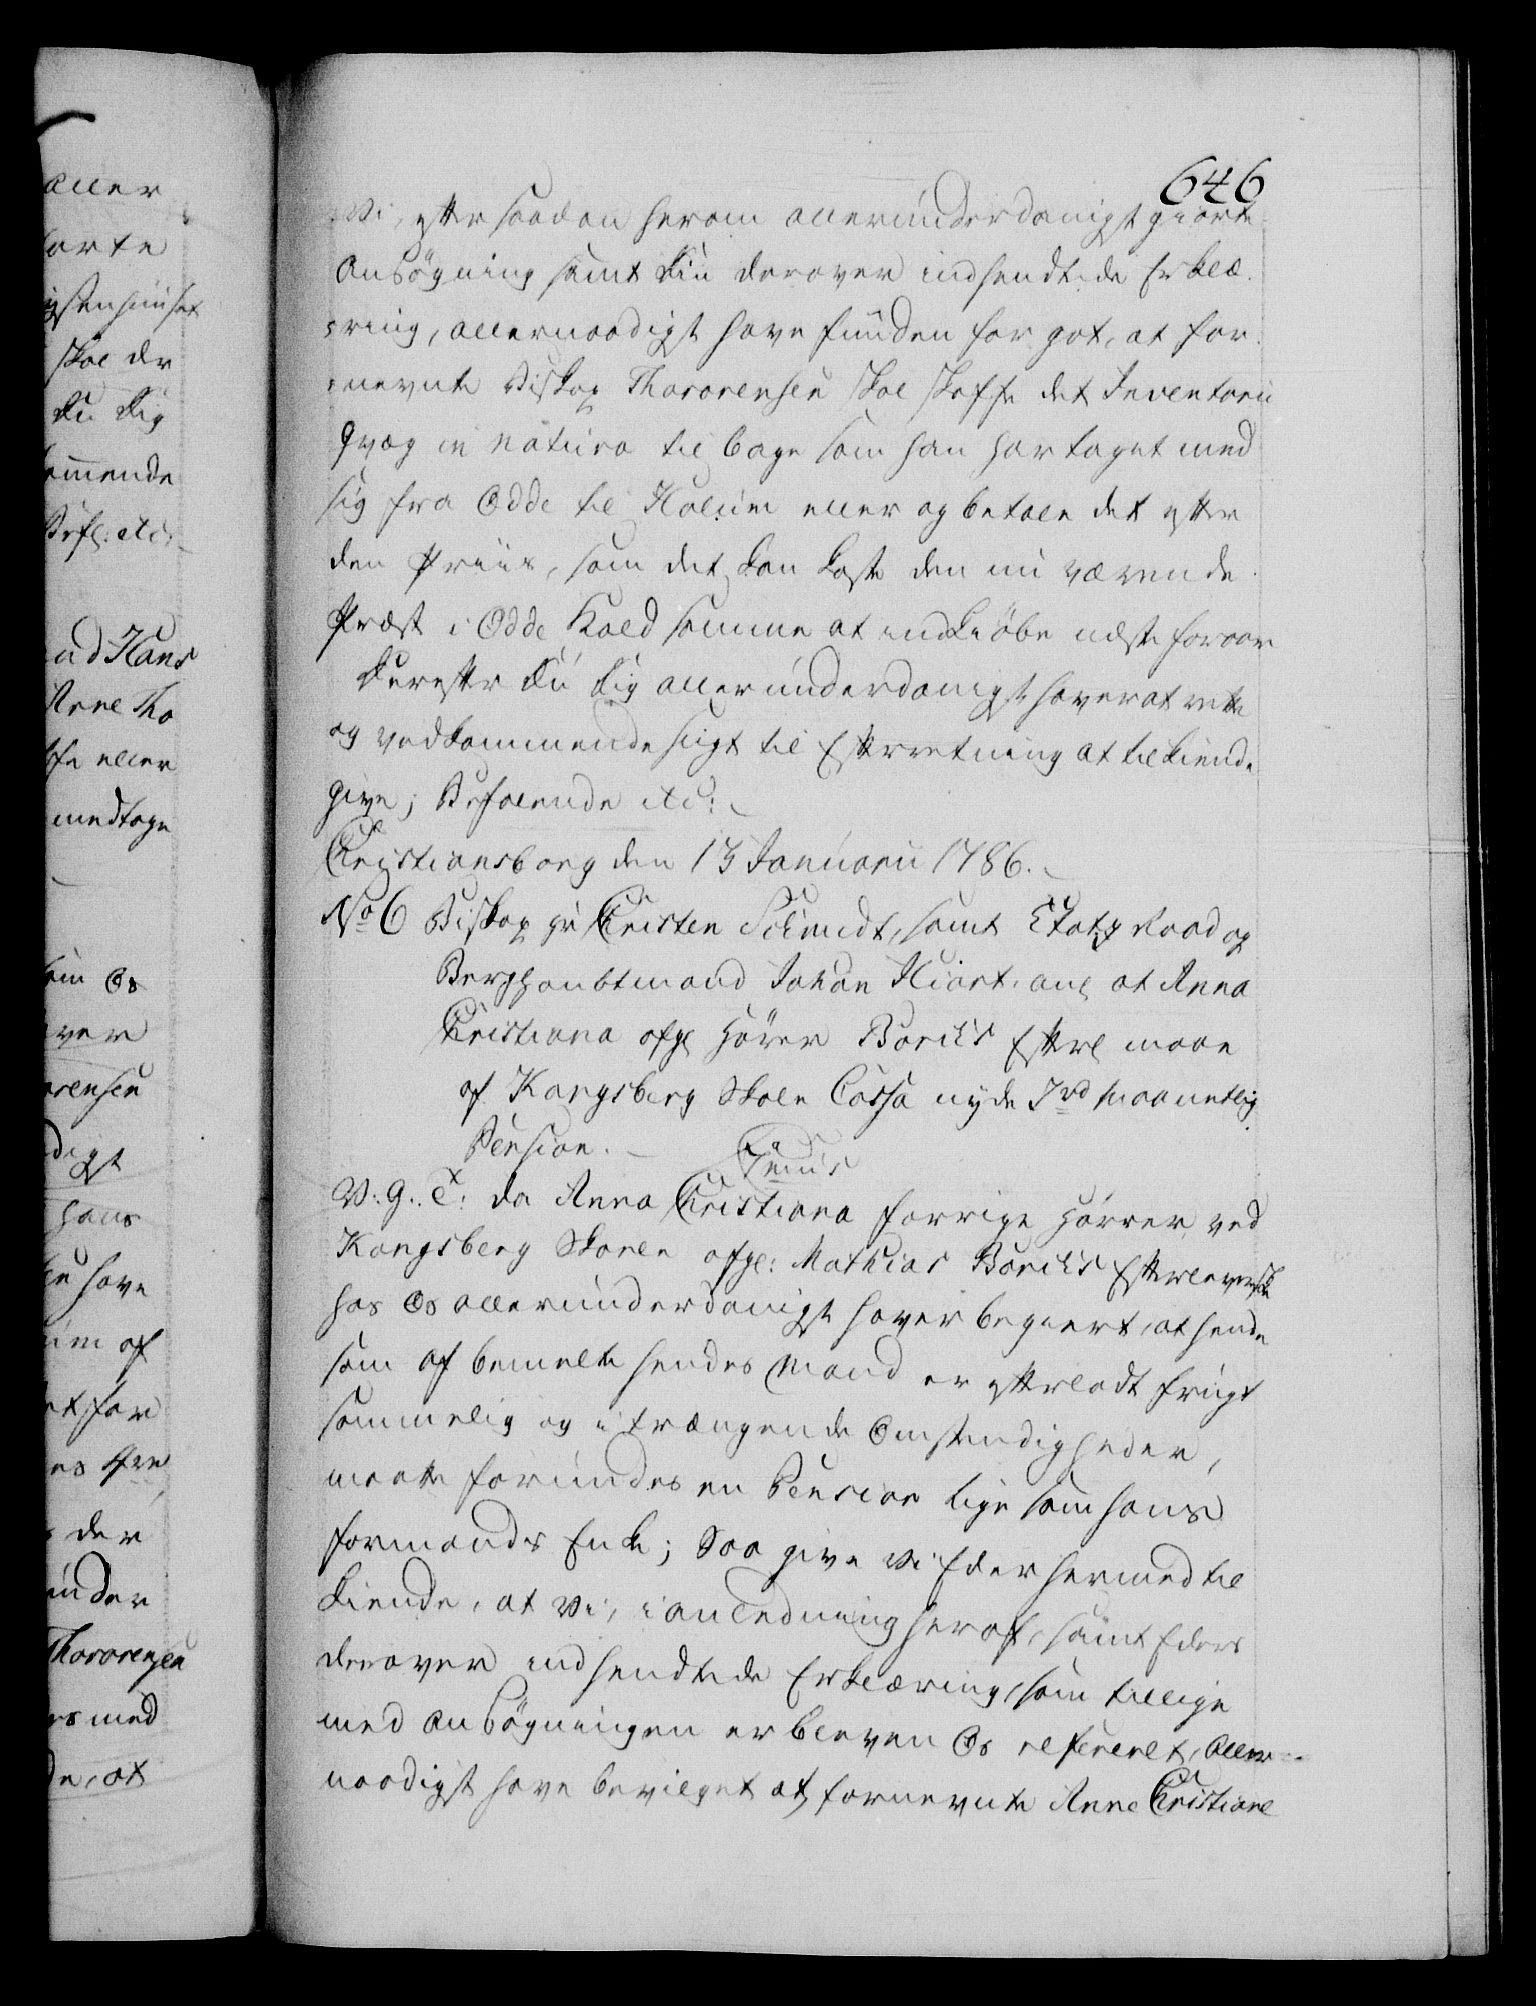 646
Vi, efter saadan herom allerunderdanigst giorte
Ansögning samt din derover indsendtede Erklæ-
ring, allernaadigst have funden for got, at for-
nevnte Biskop Thorarensen skal skaffe det Inventarii
Qvæg in natura tilbage som han har taget med
sig fra Odde til Holum eller og betale det efter
den Priis, som det kan koste den nu værende
Præst i Odde Kald samme at indkiöbe næste foraar
Derefter du dig allerunderdanigst haver at rette
og vedkommende sligt til Efterretning at tilkiende
give; Befalende etc:
Christiansborg den 13 Januarii 1786.
No 6 Biskop Hr Christen Schmidt, samt Etats Raad og
Berghaubtmand Johan Hiort. anl at Anna
Christiana afg Hörer Borchs Efterl maae
af Kongsberg Skole Cassa nyde 7 rd maanetlig
Pension.
V: G: T: da Anna Christiana forrige Hörrer ved
Kongsberg Skolen afg: Mathias Borchs Efterleverske
hos Os allerunderdanigst haver begiert, at hende
som af bemelte hendes Mand er efterladt frugt
sommelig og i trængende Omstendigheder,
maatte forundes en Pension lige som hans
Formands Enke; Saa give Vi Eder hermed til
kiende, at Vi, i anledning heraf, samt Eders
derover indsendtede Erklæring, som tillige
med Ansögningen er bleven Os refereret, Aller-
naadigst have bevilget at fornevnte Anne Christiane